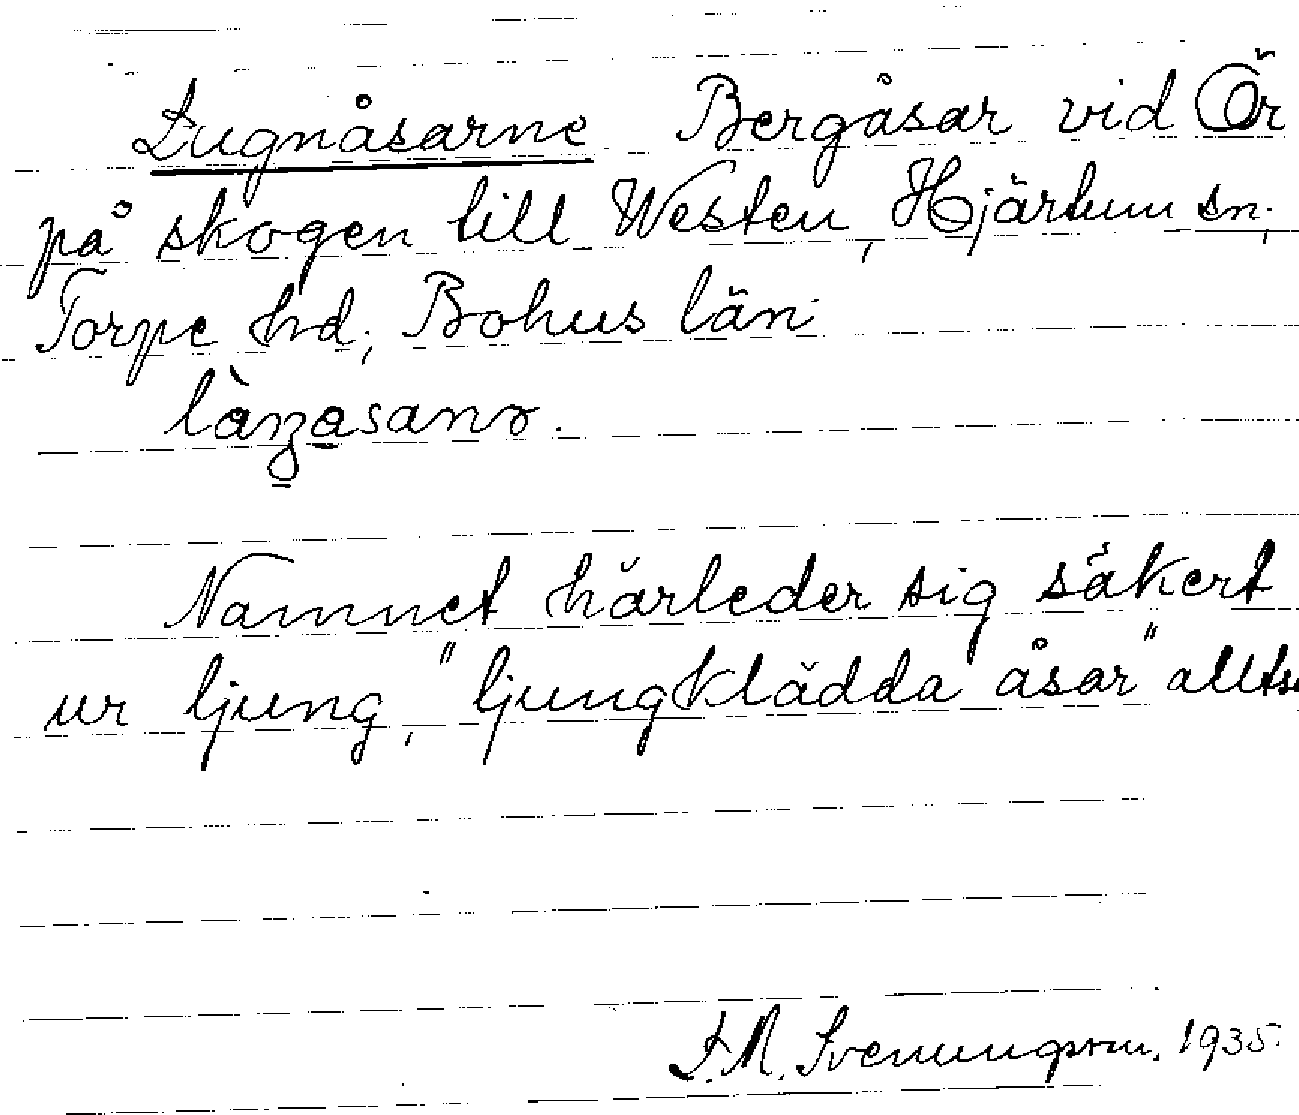 Lugnåsarne Bergåsar vid Ör
på skogen till Westen, Hjärtum sn.,
Torpe hd., Bohus län
Namnet härleder sig säkert
ur ljung, "ljungklädda åsar" alltså
F.M. Svenungsson. 1935.